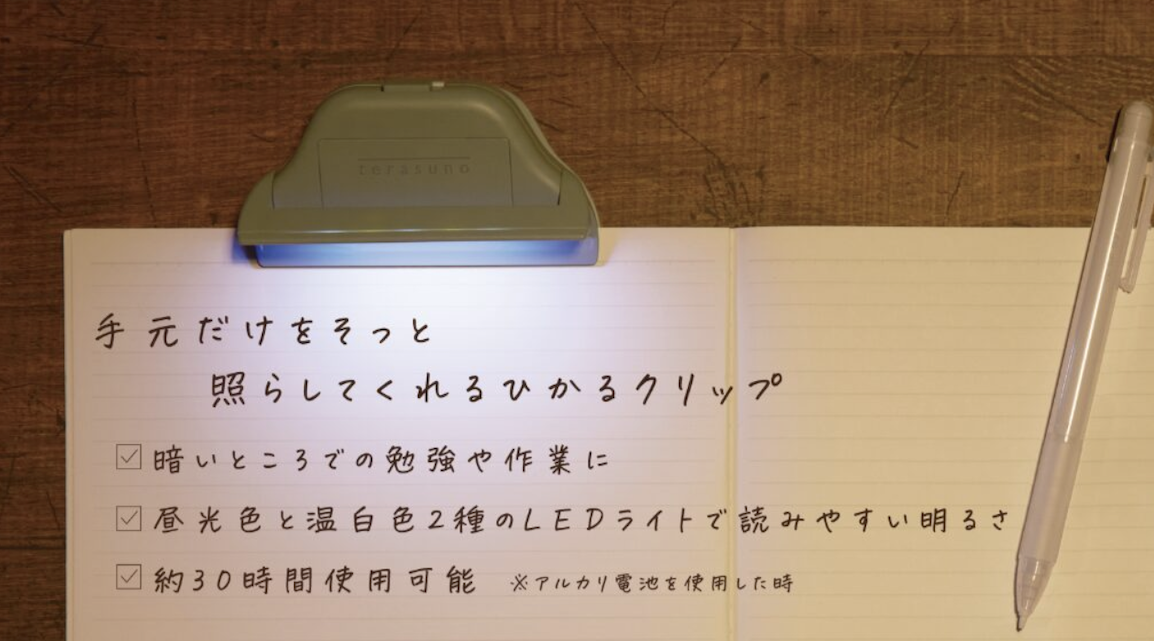 terasuno
手元だけをそっと
照らしてくれるひかるクリップ
☑暗いところでの勉強や作業に
☑昼光色と温白色2種のLEDライトで読みやすい明るさ
☑約30時間使用可能 ※アルカリ電池を使用した時